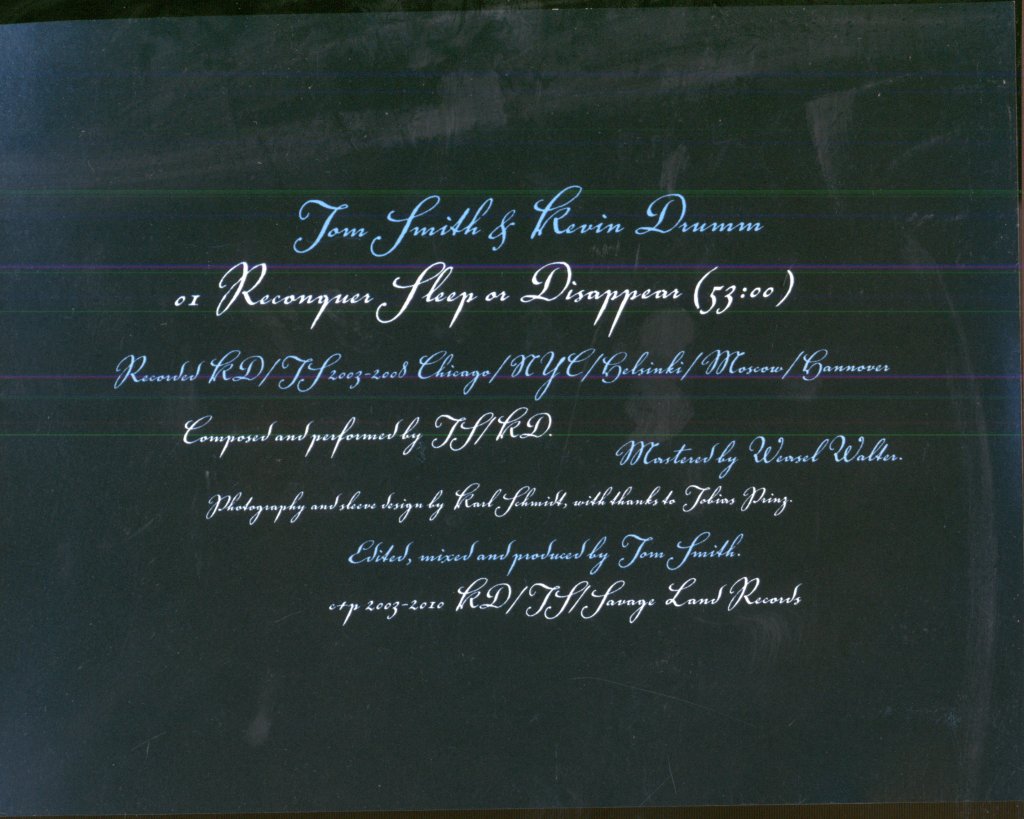 Tom Smith & Kevin Drumm
01 Reconquer Sleep or Disappear (53:00)
Recorded KD/TS 2003-2008 Chicago/NYC/Helsinki/Moscow/Hannover
Composed and performed by TS/KD.
Mastered by Weasel Walter.
Photography and sleeve design by Karl Schmidt, with thanks to Tobias Prinz.
Edited, mixed and produced by Tom Smith.
c+p 2003-2010 KD/TS/Savage Land Records